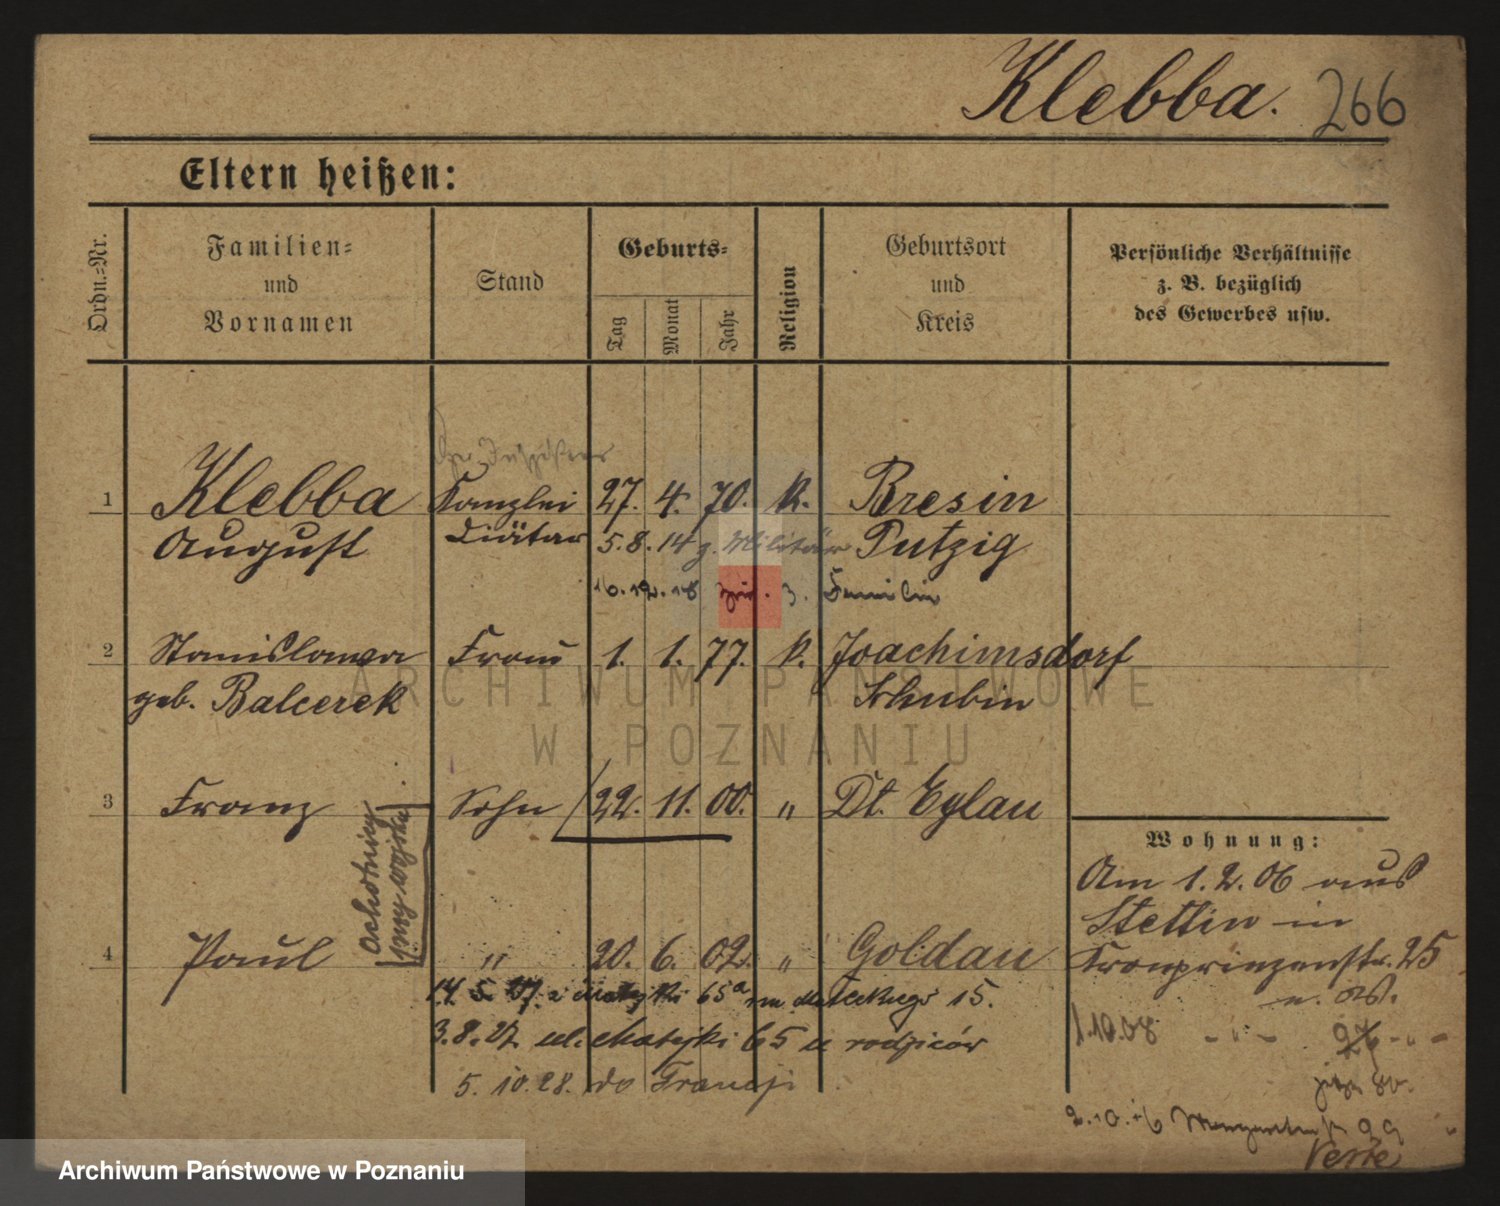 Klebba. 266
Eltern heißen:
Ordn.-Nr.
Familien-
und
Vornamen
Stand
Geburts-
Tag
Monat
Jahr
Religion
Geburtsort
und
Kreis
Persönliche Verhältnisse
z. B. bezüglich
des Gewerbes usw.
1 Klebba Kanzlei 27. 4. 70. k. Bresin
August Diätar 5.8.14 z. Militär Putzig
16.12.18 zur. z. Familie
2 Stanislawa Frau 1. 1. 77. k. Joachimsdorf
geb. Balcerek Schubin
3 Franz Sohn 22. 11. 00. " Dt. Eylau
ochotniczy
przy wojsku
Wohnung:
Am 1.2.06 aus
Stettin in
Kronprinzenstr. 25
4 Paul " 20. 6. 02. " Goldau
14.5.27. 65a 15.
3.8.27. ul. Matejki 65 u rodziców
5.10.28. do Francji
1.10.08 - " -
80.
2.10.16 99
Verte
ARCHIWUM PAŃSTWOWE
W POZNANIU
Archiwum Państwowe w Poznaniu